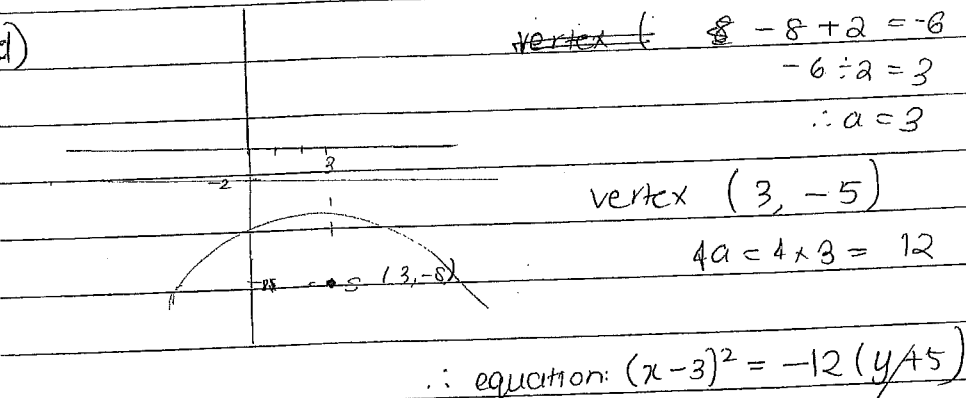 d)
vertex ( 8 - 8 + 2 = -6
-6 ÷ 2 = 3
∴ a = 3
3
-2
vertex (3, -5)
4a = 4 × 3 = 12
-8 S (3, -8)
∴ equation: (x - 3)² = -12 (y + 5)